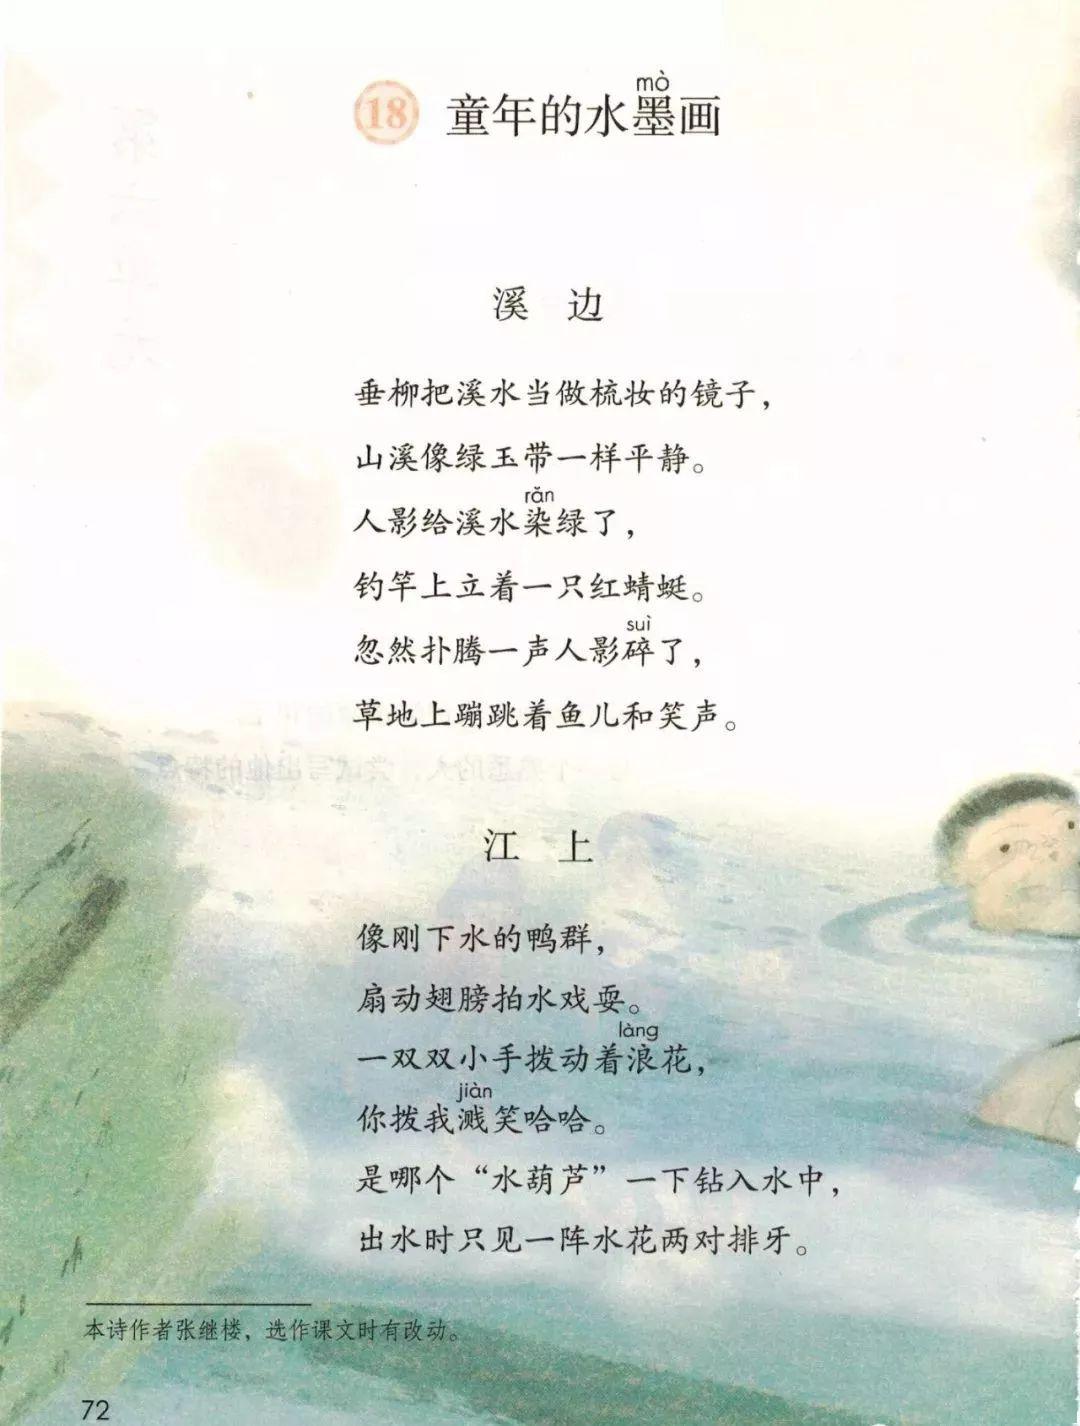 18 童年的水墨画
mò
溪 边
垂柳把溪水当做梳妆的镜子，
山溪像绿玉带一样平静。
rǎn
人影给溪水染绿了，
钓竿上立着一只红蜻蜓。
suì
忽然扑腾一声人影碎了，
草地上蹦跳着鱼儿和笑声。
江 上
像刚下水的鸭群，
扇动翅膀拍水戏耍。
làng
一双双小手拨动着浪花，
jiàn
你拨我溅笑哈哈。
是哪个“水葫芦”一下钻入水中，
出水时只见一阵水花两对排牙。
本诗作者张继楼，选作课文时有改动。
72